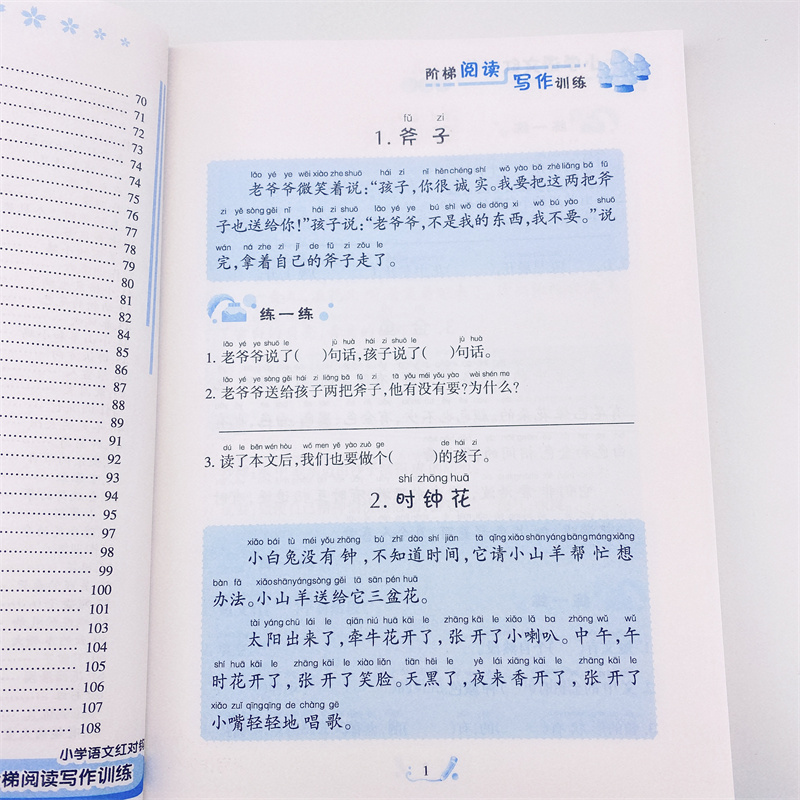 70
71
72
73
74
74
75
76
77
78
79
80
81
82
84
85
86
87
88
89
91
92
93
94
95
97
98
99
100
101
103
104
105
106
107
108
小学语文红对
梯阅读写作训练
阶梯阅读
写作训练
fǔ zi
1.斧子
lǎo yé ye wēi xiào zhe shuō hái zi nǐ hěn chéng shí wǒ yào bǎ zhè liǎng bǎ fǔ
老爷爷微笑着说:“孩子,你很诚实。我要把这两把斧
zi yě sòng gěi nǐ hái zi shuō lǎo yé ye bú shì wǒ de dōng xi wǒ bú yào shuō
子也送给你!”孩子说:“老爷爷,不是我的东西,我不要。”说
wán ná zhe zì jǐ de fǔ zi zǒu le
完,拿着自己的斧子走了。
练一练
lǎo yé ye shuō le jù huà hái zi shuō le jù huà
1. 老爷爷说了( )句话,孩子说了( )句话。
lǎo yé ye sòng gěi hái zi liǎng bǎ fǔ zi tā yǒu méi yǒu yào wèi shén me
2. 老爷爷送给孩子两把斧子,他有没有要?为什么?
dú le běn wén hòu wǒ men yě yào zuò ge de hái zi
3. 读了本文后,我们也要做个( )的孩子。
shí zhōng huā
2.时钟花
xiǎo bái tù méi yǒu zhōng bù zhī dào shí jiān tā qǐng xiǎo shān yáng bāng máng xiǎng
小白兔没有钟,不知道时间,它请小山羊帮忙想
bàn fǎ xiǎo shān yáng sòng gěi tā sān pén huā
办法。小山羊送给它三盆花。
tài yáng chū lái le qiān niú huā kāi le zhāng kāi le xiǎo lǎ ba zhōng wǔ wǔ
太阳出来了,牵牛花开了,张开了小喇叭。中午,午
shí huā kāi le zhāng kāi le xiào liǎn tiān hēi le yè lái xiāng kāi le zhāng kāi le
时花开了,张开了笑脸。天黑了,夜来香开了,张开了
xiǎo zuǐ qīng qīng de chàng gē
小嘴轻轻地唱歌。
1